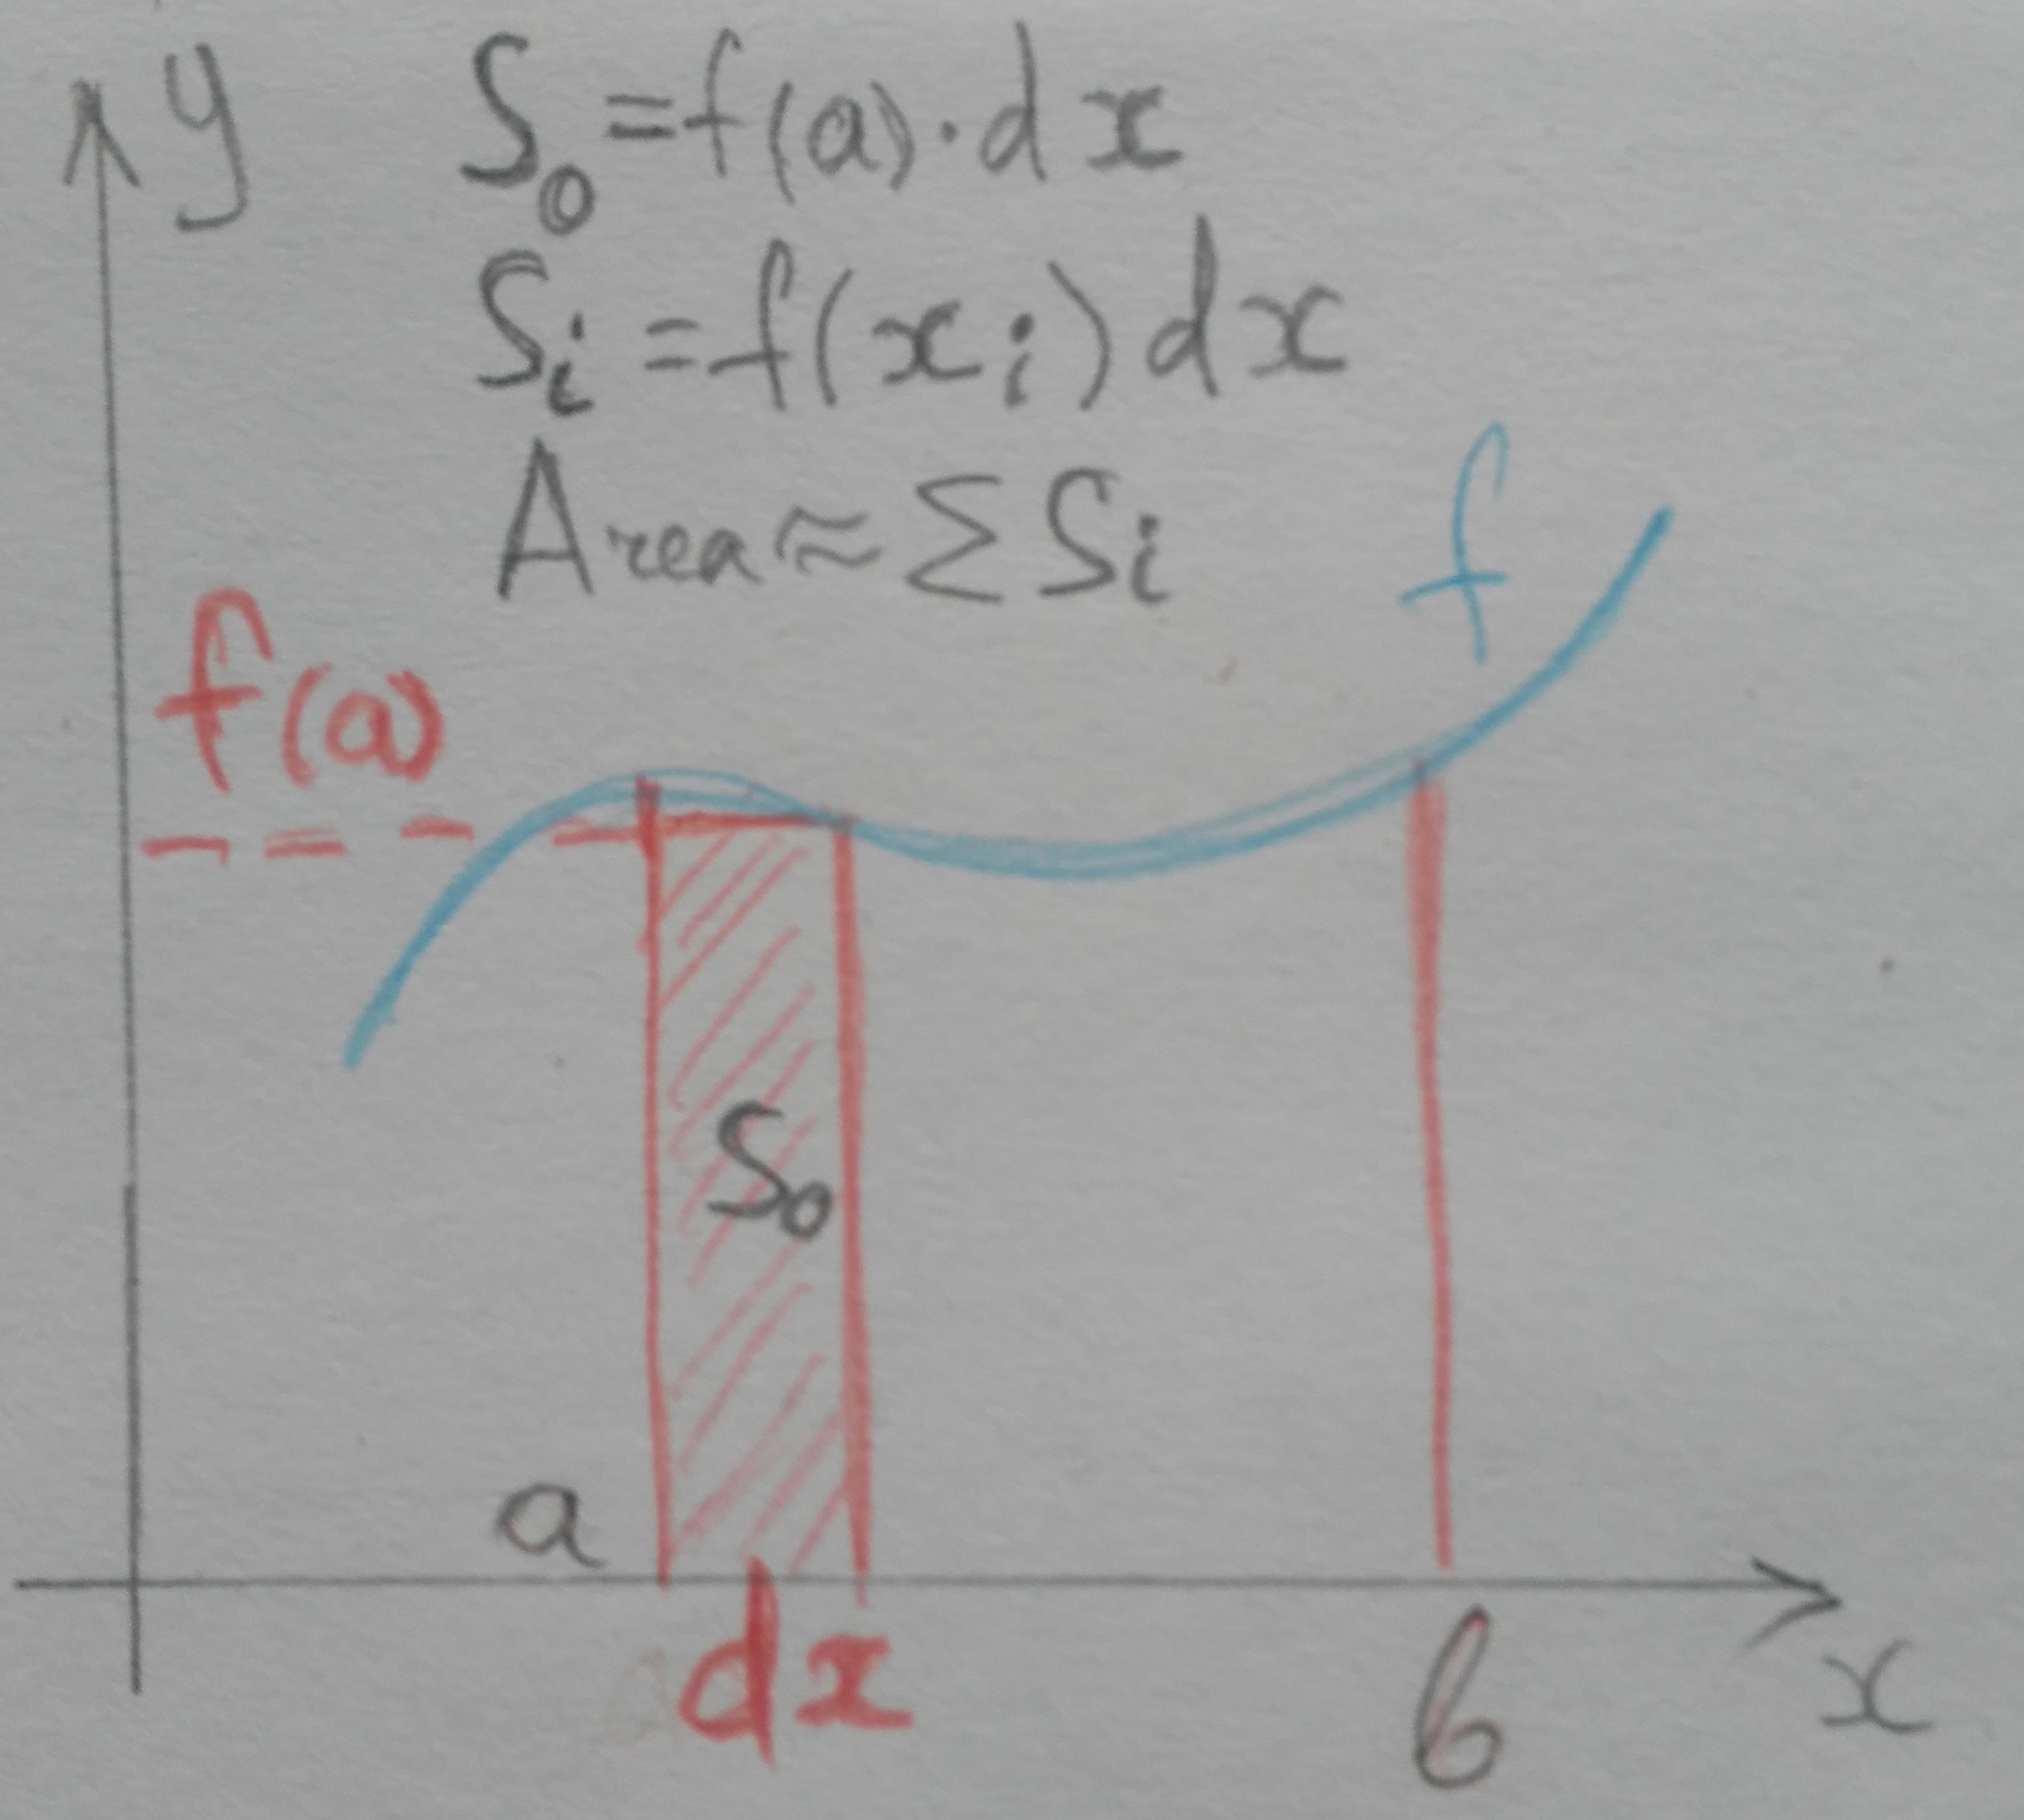 y
S₀ = f(a)·dx
Sᵢ = f(xᵢ)dx
Area ≈ ΣSᵢ
f
f(a)
S₀
a
dx
b
x